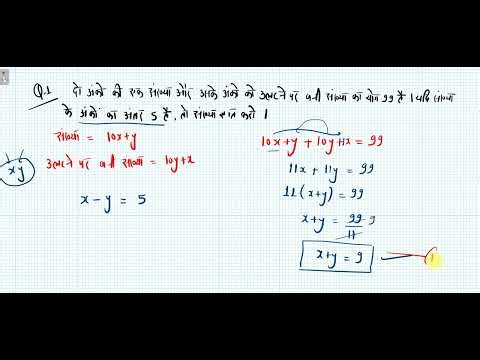 Q.1 दो अंकों की एक संख्या और उसके अंकों को उलटने पर बनी संख्या का योग 99 है। यदि संख्या
के अंकों का अंतर 5 है, तो संख्या ज्ञात करो।
संख्या = 10x+y
उलटने पर बनी संख्या = 10y+x
xy
x-y = 5
10x+y + 10y+x = 99
11x + 11y = 99
11(x+y) = 99
x+y = 99/11 9
x+y = 9